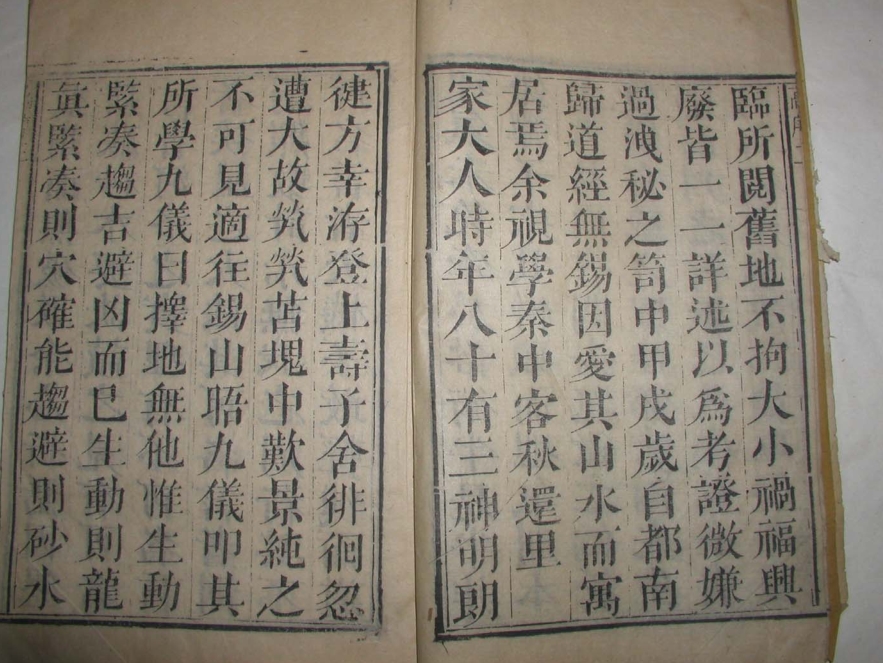 臨所閱舊地不拘大小禍福興
廢皆一一詳述以爲考證微嫌
過洩秘之笥中甲戌歲自都南
歸道經無錫因愛其山水而寓
居焉余視學秦中客秋還里
家大人時年八十有三神明朗
健方幸洊登上壽子舍徘徊忽
遭大故煢煢苫塊中歎景純之
不可見適往錫山晤九儀叩其
所學九儀曰擇地無他惟生動
緊凑趨吉避凶而已生動則龍
眞緊凑則穴確能趨避則砂水